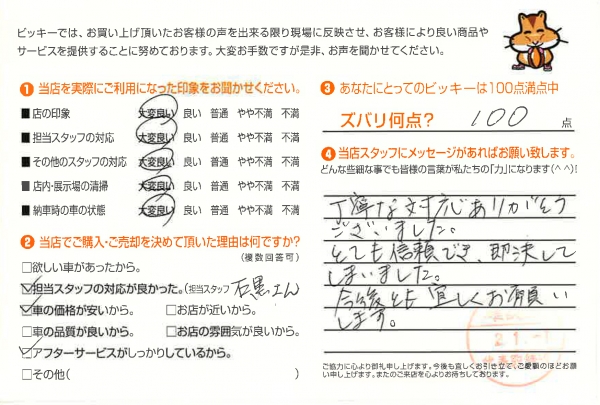 ビッキーでは、お買い上げ頂いたお客様の声を出来る限り現場に反映させ、お客様により良い商品や
サービスを提供することに努めております。大変お手数ですが是非、お声を聞かせてください。
❶ 当店を実際にご利用になった印象をお聞かせください。
■ 店の印象 大変良い 良い 普通 やや不満 不満
■ 担当スタッフの対応 大変良い 良い 普通 やや不満 不満
■ その他のスタッフの対応 大変良い 良い 普通 やや不満 不満
■ 店内・展示場の清掃 大変良い 良い 普通 やや不満 不満
■ 納車時の車の状態 大変良い 良い 普通 やや不満 不満
❷ 当店でご購入・ご売却を決めて頂いた理由は何ですか?
(複数回答可)
□欲しい車があったから。
☑担当スタッフの対応が良かった。(担当スタッフ 石黒さん
☑車の価格が安いから。 □お店が近いから。
□車の品質が良いから。 □お店の雰囲気が良いから。
☑アフターサービスがしっかりしているから。
□その他( )
❸ あなたにとってのビッキーは100点満点中
ズバリ何点? 100 点
❹ 当店スタッフにメッセージがあればお願い致します。
どんな些細な事でも皆様の言葉が私たちの「力」になります(^^)!
丁寧な対応ありがとう
ございました。
とても信頼でき、即決して
しまいました。
今後とも宜しくお願い
します。
ご協力に心より御礼申し上げます。今後も宜しくお引き立て、ご愛顧のほどお願
い申し上げます。またのご来店を心よりお待ちしております。